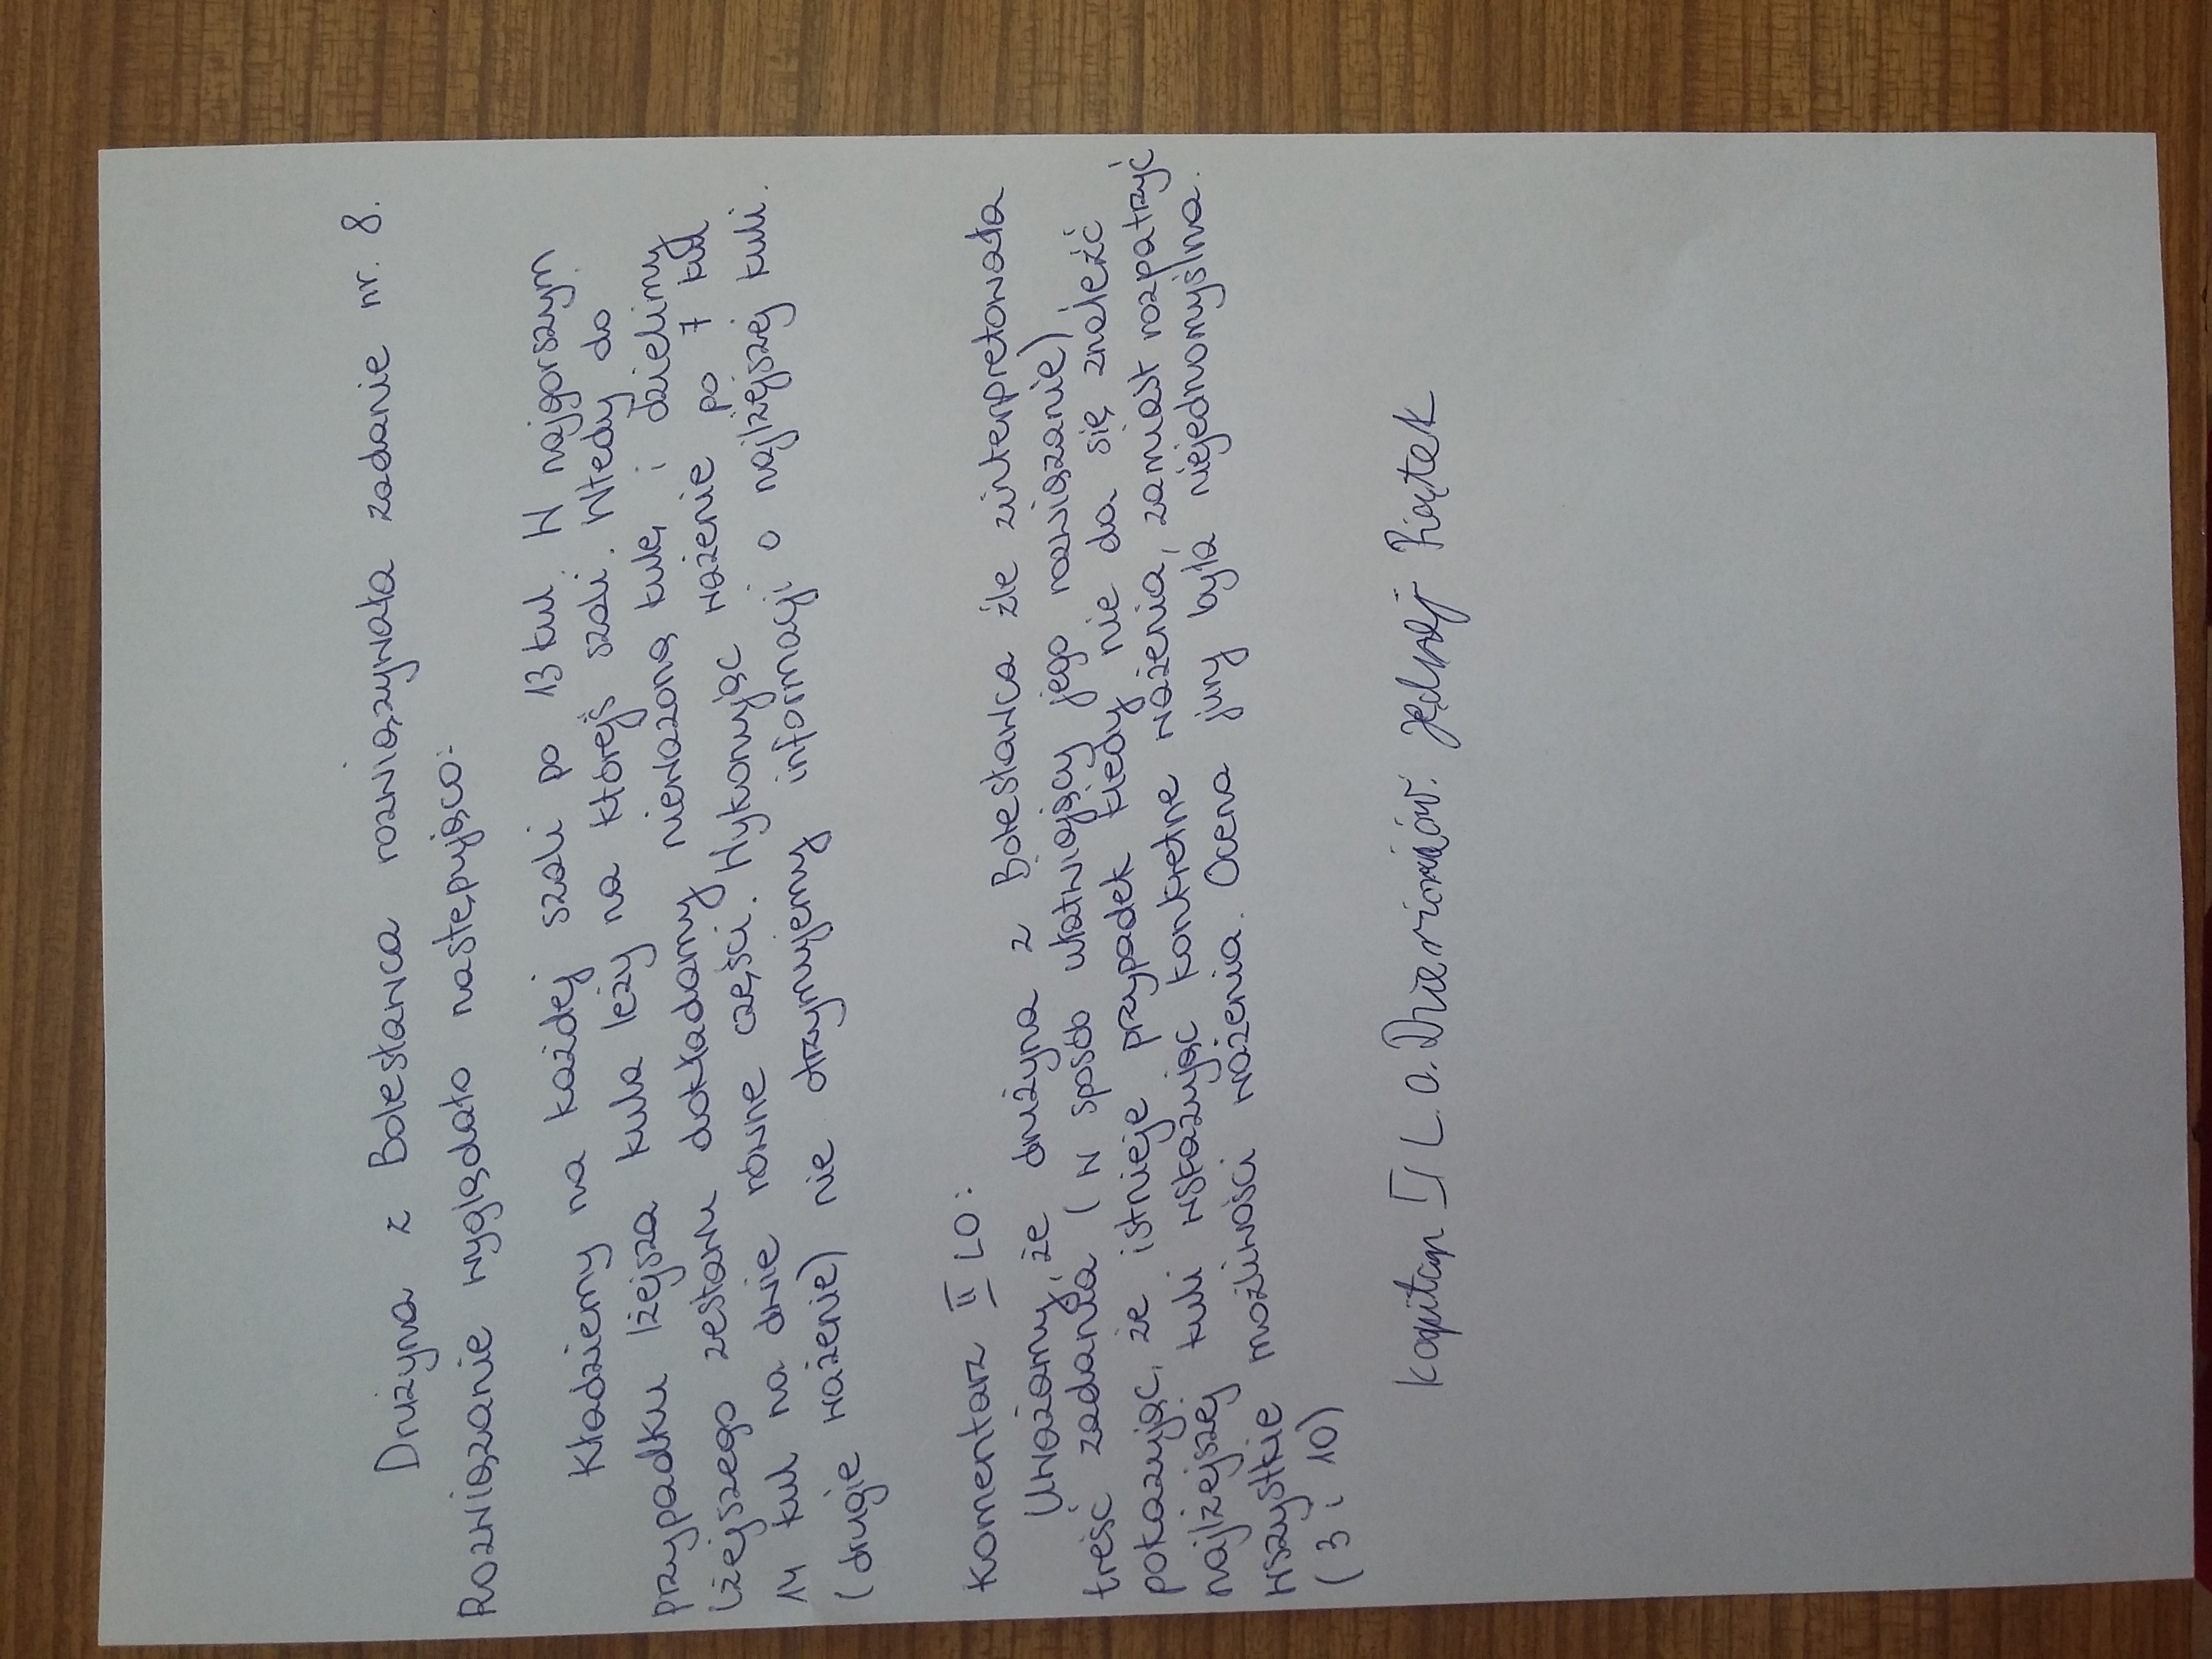 Drużyna z Bolesławca rozwiązywała zadanie nr. 8.
Rozwiązanie wyglądało następująco:
Kładziemy na każdej szali po 13 kul. W najgorszym
przypadku lżejsza kula leży na którejś szali. Wtedy do
lżejszego zestawu dokładamy nieważoną kulę i dzielimy
14 kul na dwie równe części. Wykonując ważenie po 7 kul
(drugie ważenie) nie otrzymujemy informacji o najlżejszej kuli.
Komentarz II LO:
Uważamy, że drużyna z Bolesławca źle zinterpretowała
treść zadania (w sposób ułatwiający jego rozwiązanie)
pokazując, że istnieje przypadek kiedy nie da się znaleźć
najlżejszej kuli wskazując konkretne ważenia, zamiast rozpatrzyć
wszystkie możliwości ważenia. Ocena jury była niejednomyślna.
(3 i 10)
Kapitan II L.O. Jędrzej Piątek